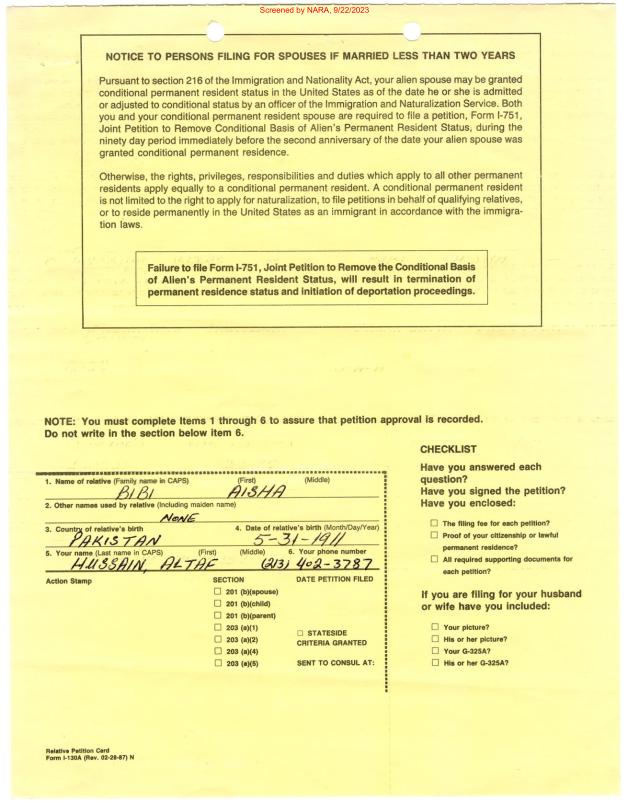 Screened by NARA, 9/22/2023
NOTICE TO PERSONS FILING FOR SPOUSES IF MARRIED LESS THAN TWO YEARS
Pursuant to section 216 of the Immigration and Nationality Act, your alien spouse may be granted
conditional permanent resident status in the United States as of the date he or she is admitted
or adjusted to conditional status by an officer of the Immigration and Naturalization Service. Both
you and your conditional permanent resident spouse are required to file a petition, Form I-751,
Joint Petition to Remove Conditional Basis of Alien's Permanent Resident Status, during the
ninety day period immediately before the second anniversary of the date your alien spouse was
granted conditional permanent residence.
Otherwise, the rights, privileges, responsibilities and duties which apply to all other permanent
residents apply equally to a conditional permanent resident. A conditional permanent resident
is not limited to the right to apply for naturalization, to file petitions in behalf of qualifying relatives,
or to reside permanently in the United States as an immigrant in accordance with the immigra-
tion laws.
Failure to file Form I-751, Joint Petition to Remove the Conditional Basis
of Alien's Permanent Resident Status, will result in termination of
permanent residence status and initiation of deportation proceedings.
NOTE: You must complete Items 1 through 6 to assure that petition approval is recorded.
Do not write in the section below item 6.
1. Name of relative (Family name in CAPS) (First) (Middle)
BIBI AISHA
2. Other names used by relative (Including maiden name)
NONE
3. Country of relative's birth 4. Date of relative's birth (Month/Day/Year)
PAKISTAN 5-31-1911
5. Your name (Last name in CAPS) (First) (Middle) 6. Your phone number
HUSSAIN, ALTAF (213) 402-3787
Action Stamp SECTION DATE PETITION FILED
201 (b)(spouse)
201 (b)(child)
201 (b)(parent)
203 (a)(1)
203 (a)(2)
203 (a)(4)
203 (a)(5)
STATESIDE
CRITERIA GRANTED
SENT TO CONSUL AT:
CHECKLIST
Have you answered each
question?
Have you signed the petition?
Have you enclosed:
The filing fee for each petition?
Proof of your citizenship or lawful
permanent residence?
All required supporting documents for
each petition?
If you are filing for your husband
or wife have you included:
Your picture?
His or her picture?
Your G-325A?
His or her G-325A?
Relative Petition Card
Form I-130A (Rev. 02-28-87) N